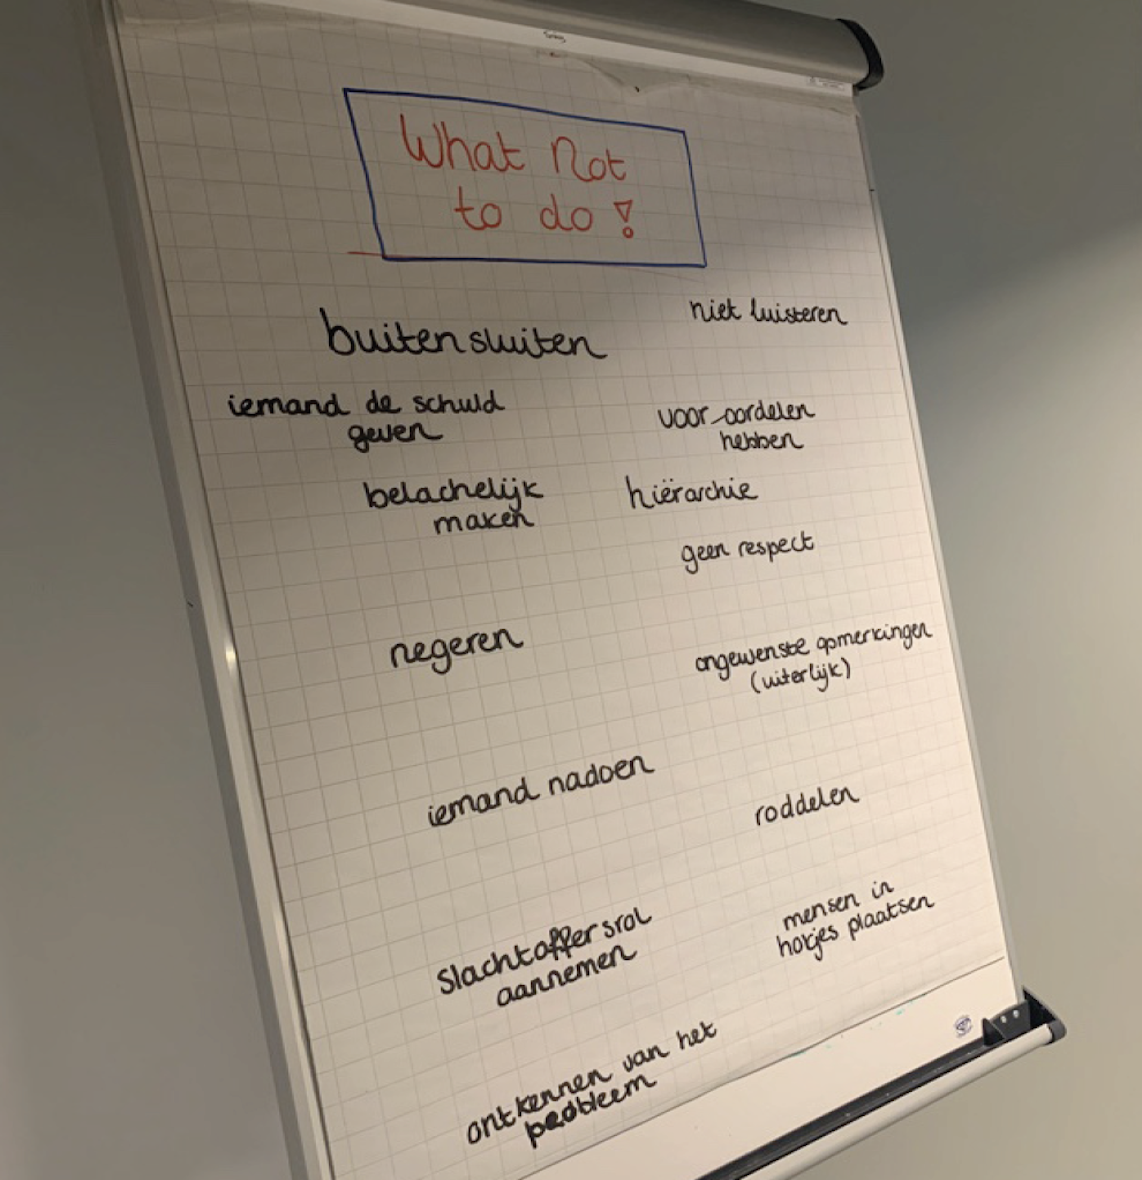 What Not
to do!
buitensluiten
niet luisteren
iemand de schuld
geven
voor-oordelen
hebben
belachelijk
maken
hiërarchie
geen respect
negeren
ongewenste opmerkingen
(uiterlijk)
iemand nadoen
roddelen
slachtoffersrol
aannemen
mensen in
hokjes plaatsen
ontkennen van het
probleem